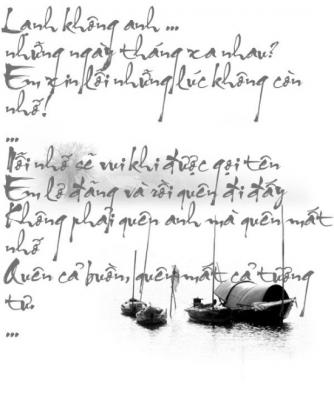 Lạnh không anh ...
những ngày tháng xa nhau?
Em xin lỗi những lúc không còn
nhớ!
...
Nỗi nhớ sẽ vui khi được gọi tên
Em lơ đãng và rồi quên đi đấy
Không phải quên anh mà quên mất
nhớ
Quên cả buồn, quên mất cả tương
tư.
...